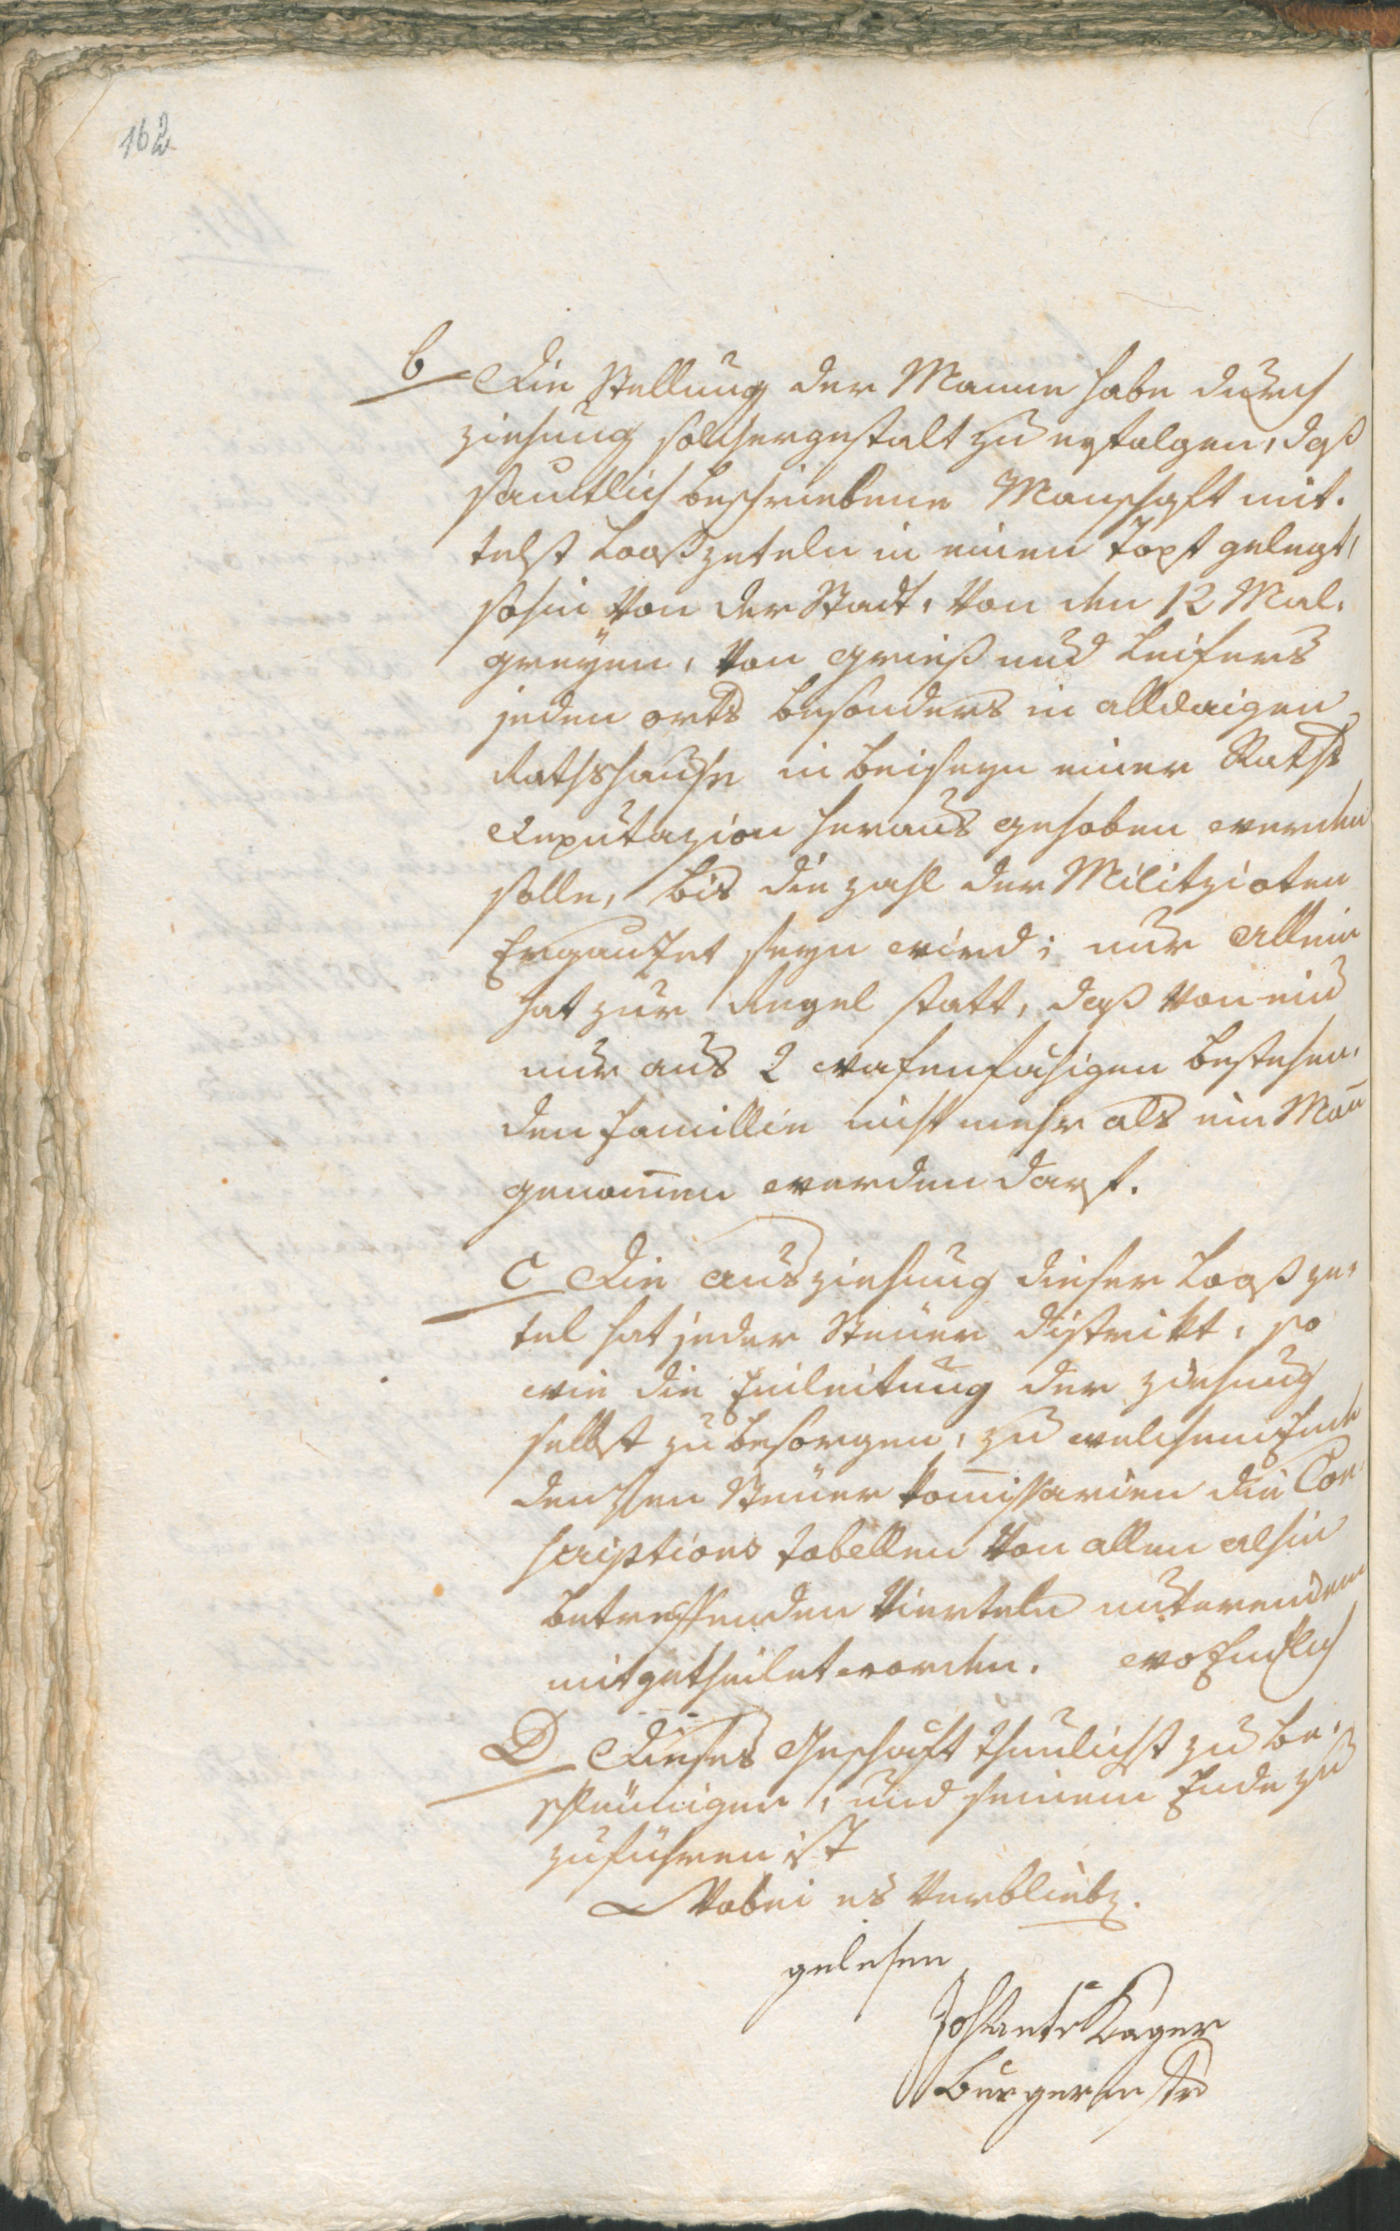 162
b Die Stellung der Manne habe durch
ziehung solchergestalt zu erfolgen, daß
sämtlich beschriebene Manschaft mit-
telst Looßzeteln in einen Topf gelegt,
sohin von der Stadt, von den 12 Mal-
greyen, von Grieß und Leifers
jeden orts besonders in alldaigen
Rathshause in Beiseyn einer Raths
Deputazion heraus gehoben werden
solle, bis die zahl der Militzioten
Ergäntzet seyn wird; nur Allein
hat zur Regel statt, daß von ein
nur aus 2 wafenfähigen bestehen-
den Famillie nicht mehr als ein Man̄
genom̄en werden darf.
C Die Ausziehung dieser Looßze-
tel hat jeder Steuer distrikt, so
wie die Einleitung der ziehung
selbst zu besorgen, zu welchem Ende
denselben Steuer Com̄issarien die Con-
scriptions tabellen von allen alhin
betreffenden Vierteln
mitgetheilet worden. wo Endlich
D Dieses Geschäft thunlichst zu be-
schleunigen, und seinem Ende zu
zuführen ist
Wobei es verbliebe.
gelesen
Kager
Burgermstr